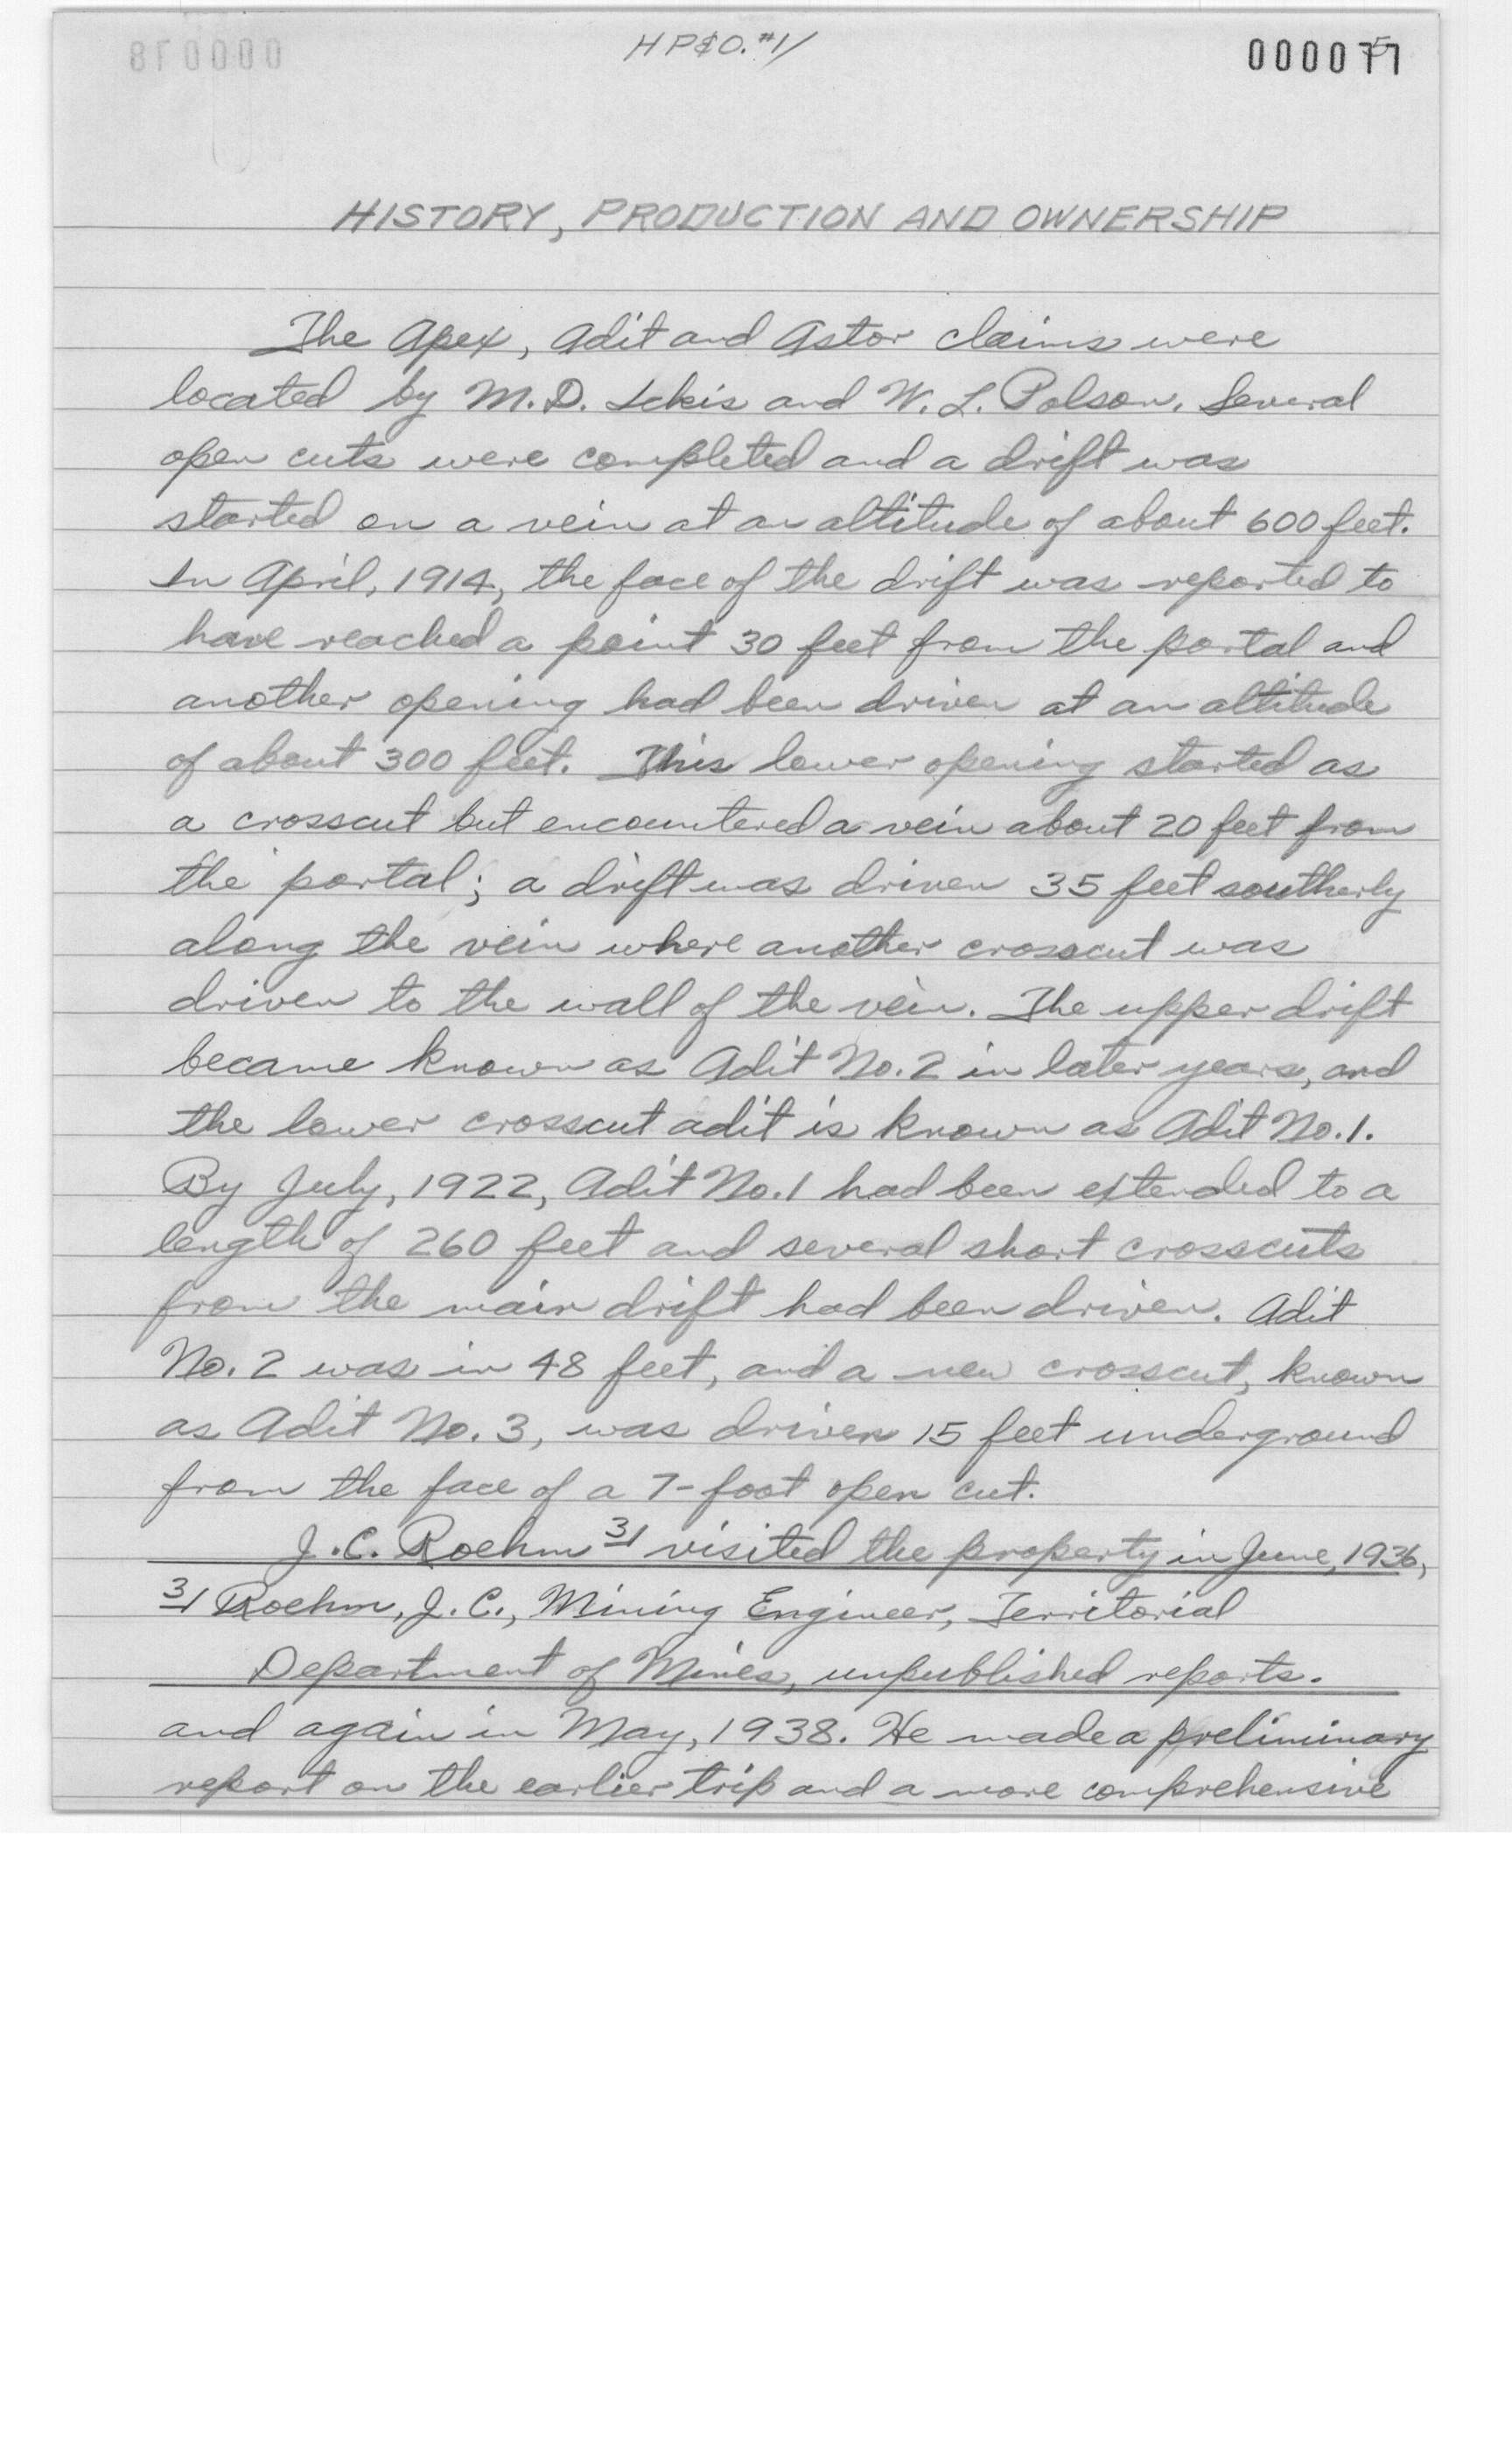 HP&O. #1/
HISTORY, PRODUCTION AND OWNERSHIP
The Apex, Adit and Astor claims were
located by M.D. Ickis and W. L. Polson. Several
open cuts were completed and a drift was
started on a vein at an altitude of about 600 feet.
In April, 1914, the face of the drift was reported to
have reached a point 30 feet from the portal and
another opening had been driven at an altitude
of about 300 feet. This lower opening started as
a crosscut but encountered a vein about 20 feet from
the portal; a drift was driven 35 feet southerly
along the vein where another crosscut was
driven to the wall of the vein. The upper drift
became known as Adit No. 2 in later years, and
the lower crosscut adit is known as Adit No. 1.
By July, 1922, Adit No. 1 had been extended to a
length of 260 feet and several short crosscuts
from the main drift had been driven. Adit
No. 2 was in 48 feet, and a new crosscut, known
as Adit No. 3, was driven 15 feet underground
from the face of a 7-foot open cut.
J.C. Roehm 3/ visited the property in June, 1936,
3/ Roehm, J.C., Mining Engineer, Territorial
Department of Mines, unpublished reports.
and again in May, 1938. He made a preliminary
report on the earlier trip and a more comprehensive